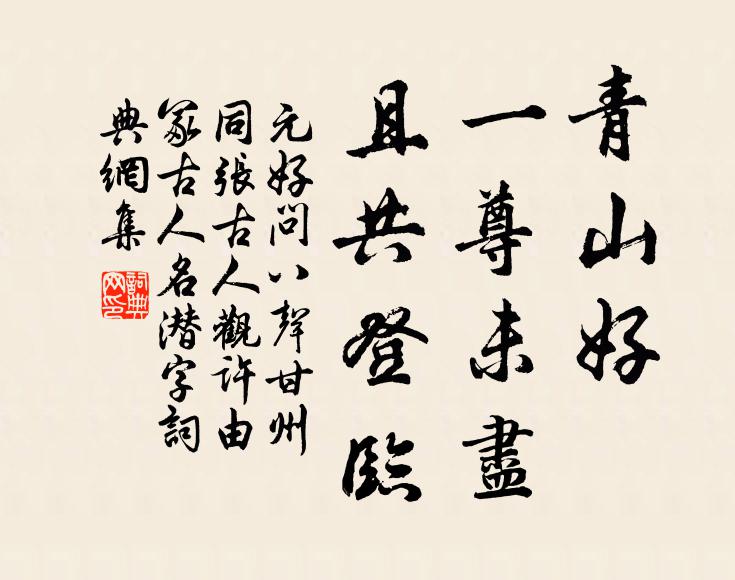 青山好
一尊未盡
且共登臨
元好問八聲甘州
同張古人觀許由
冢古人名潛字詞
典網集
詞典
网印